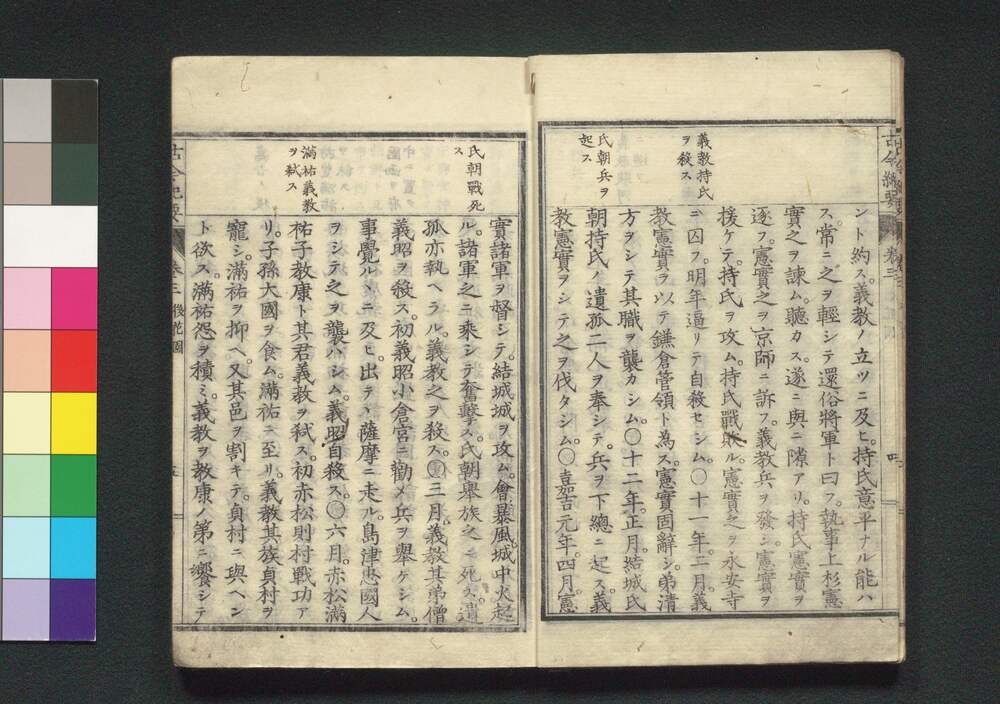 古今紀要 卷三
義教持氏
ヲ殺ス
氏朝兵ヲ
起ス
ント約ス。義教ノ立ツニ及ヒ。持氏意平ナル能ハ
ス。常ニ之ヲ輕シテ還俗將軍ト曰フ。執事上杉憲
實之ヲ諫ム。聽カス。遂ニ與ニ隙アリ。持氏憲實ヲ
逐フ。憲實之ヲ京師ニ訴フ。義教兵ヲ發シ。憲實ヲ
援ケテ。持氏ヲ攻ム。持氏戰敗ル。憲實之ヲ永安寺
ニ囚フ。明年逼リテ自殺セシム。〇十一年。二月。義
教憲實ヲ以テ鎌倉管領ト為ス。憲實固辭シ。弟清
方ヲシテ其職ヲ襲カシム。〇十二年。正月。結城氏
朝持氏ノ遺孤二人ヲ奉シテ。兵ヲ下總ニ起ス。義
教憲實ヲシテ之ヲ伐タシム。〇嘉吉元年。四月。憲
氏朝戰死
ス
滿祐義教
ヲ弑ス
實諸軍ヲ督シテ。結城城ヲ攻ム。會暴風。城中火起
ル。諸軍之ニ乘シテ奮擊ス。氏朝擧族之ニ死ス。遺
孤亦執ヘラル。義教之ヲ殺ス。〇三月。義教其弟僧
義昭ヲ殺ス。初義昭小倉宮ニ勸メ兵ヲ擧ケシム。
事覺ルヽニ及ヒ。出テヽ薩摩ニ走ル。島津忠國人
ヲシテ之ヲ襲ハシム。義昭自殺ス。〇六月。赤松滿
祐子教康ト其君義教ヲ弑ス。初赤松則村戰功ア
リ。子孫大國ヲ食ム。滿祐ニ至リ。義教其族貞村ヲ
寵シ。滿祐ヲ抑ヘ。又其邑ヲ割キテ。貞村ニ與ヘン
ト欲ス。滿祐怨ヲ積ミ。義教ヲ教康ノ第ニ饗シテ
古今紀要 卷三 後花園 五